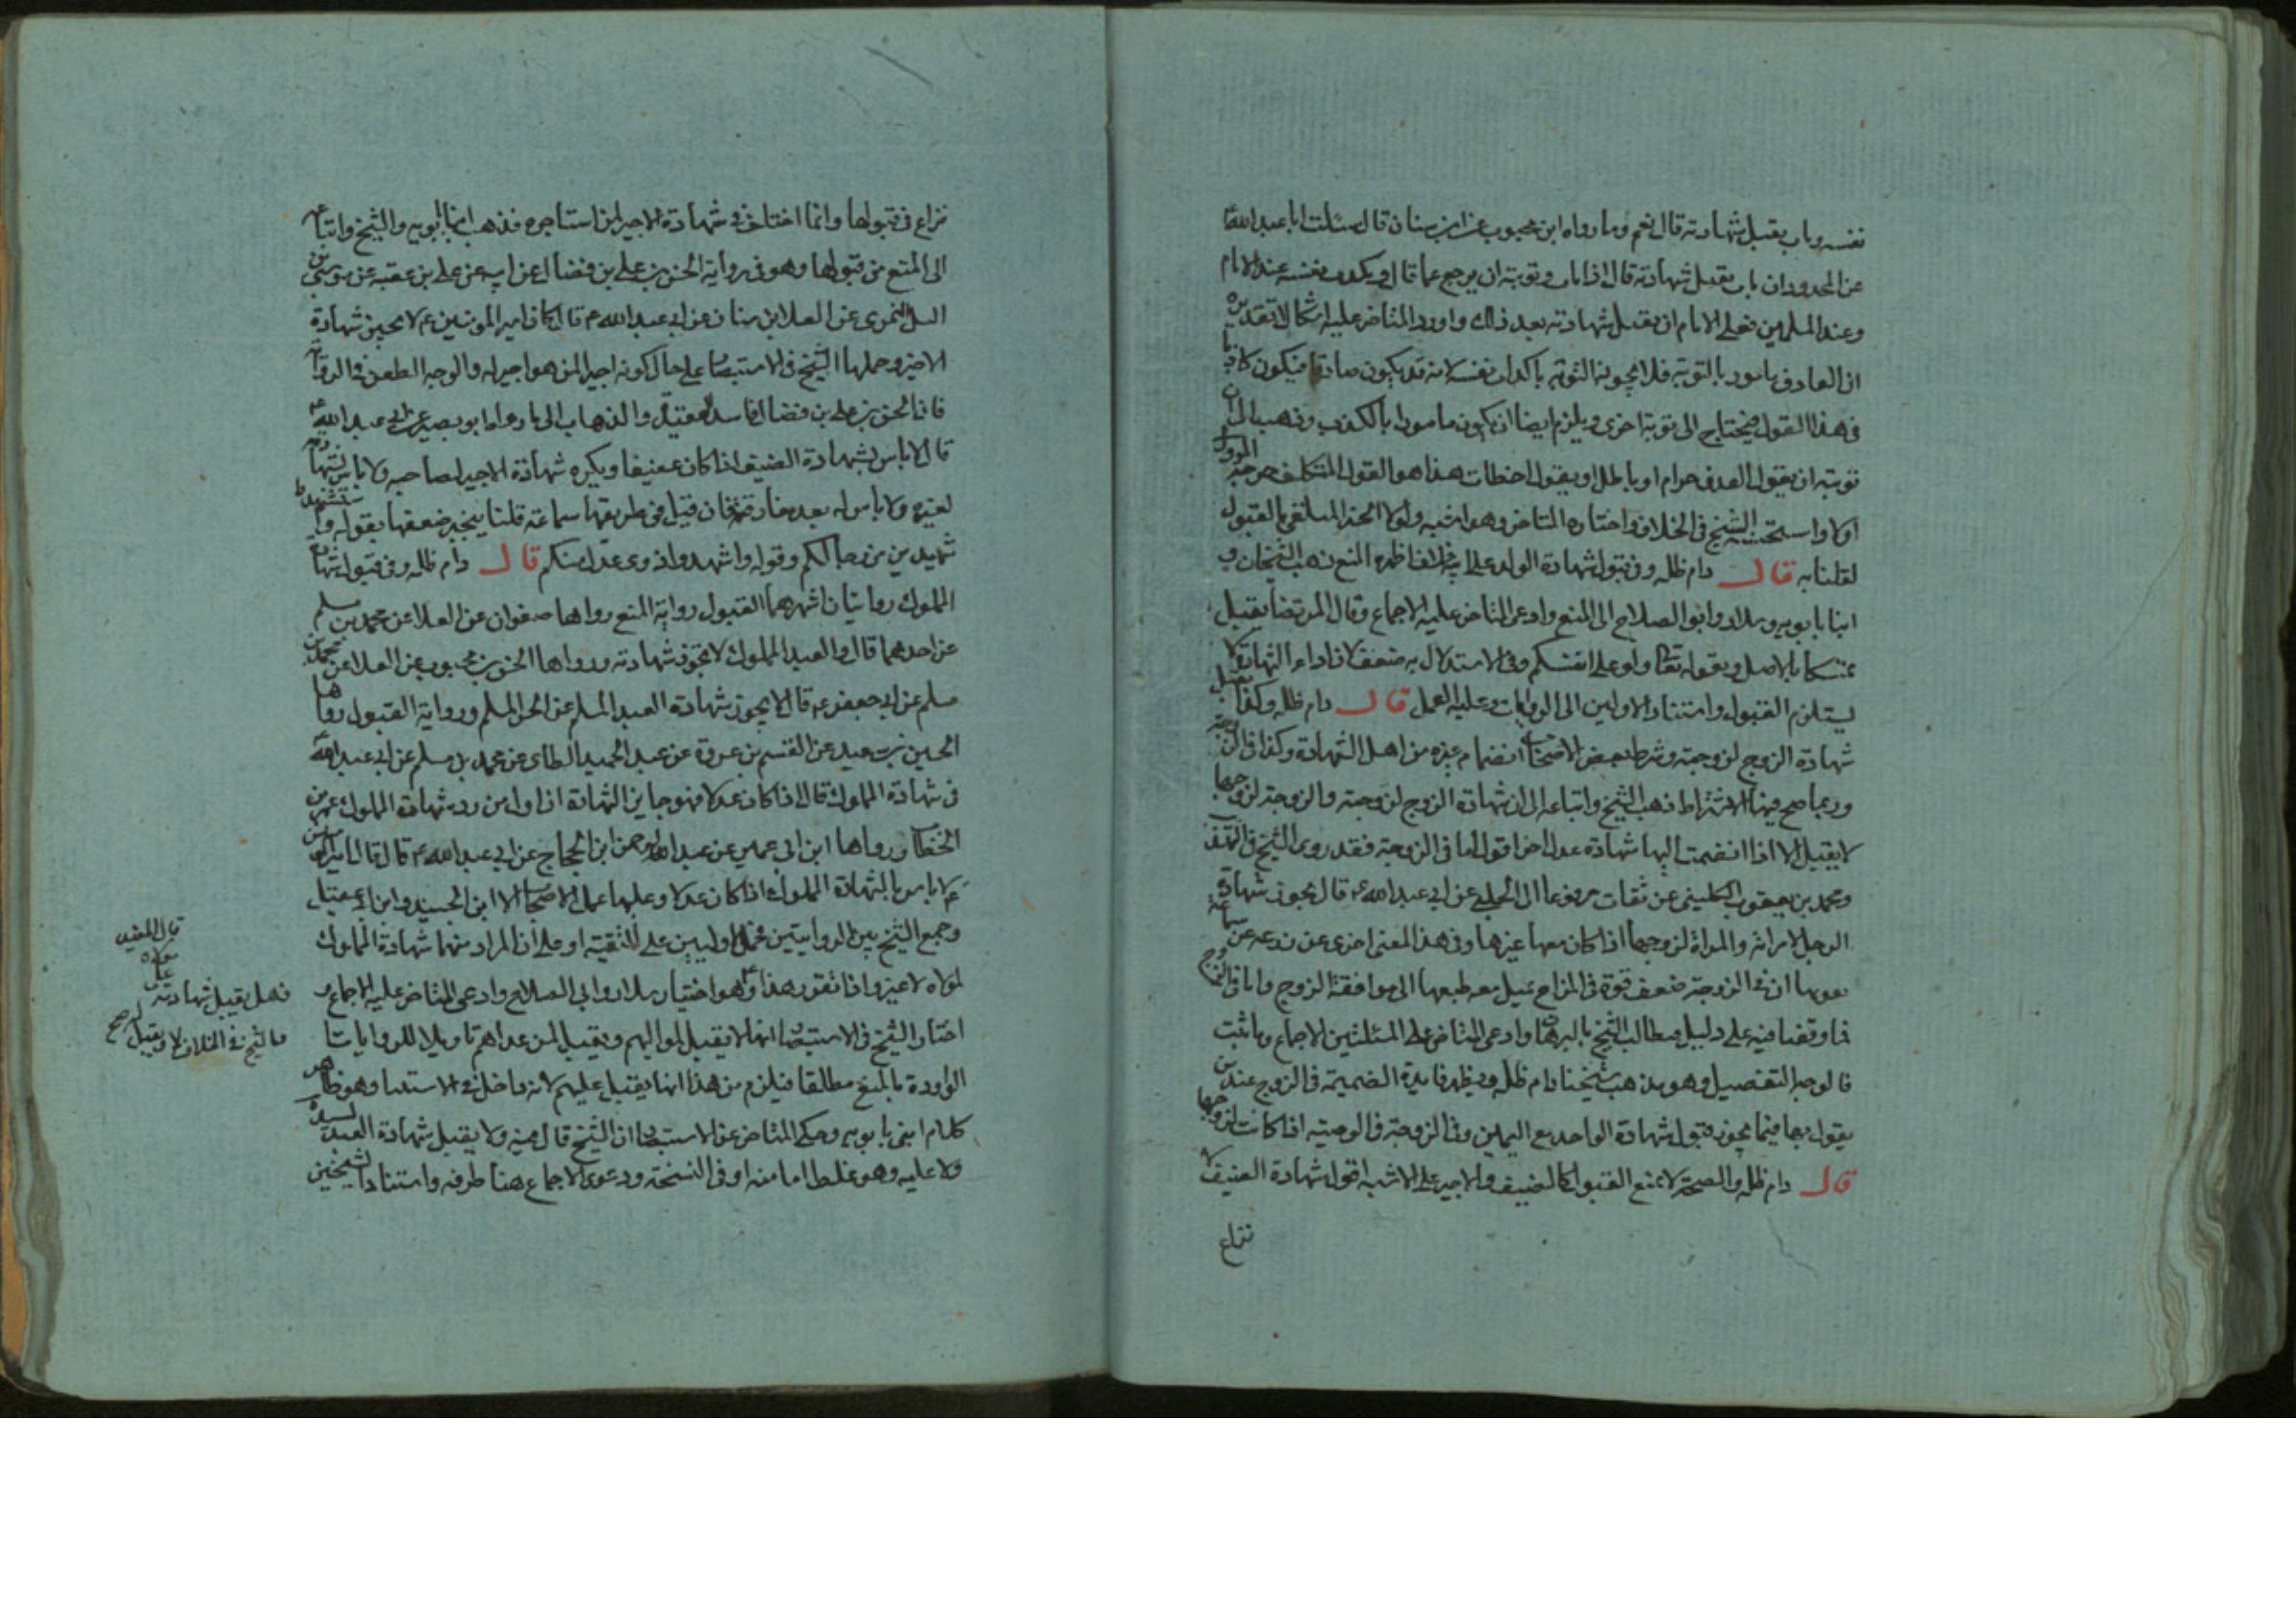 نفسه وتاب يقبل شهادته قال نعم وما رواه ابن محبوب عن ابن سنان قال سئلت ابا عبد الله ع
عن المحدود ان تاب يقبل شهادته قال اذا تاب وتوبته ان يرجع عما قال ويكذب نفسه عند الامام
وعند المسلمين فعلى الامام ان يقبل شهادته بعد ذلك واورد المتاخر عليه اشكالا تقديره
ان القاذف مامور بالتوبة فلا يجوز التوبة باكذاب نفسه لانه قد يكون صادقا فيكون كاذبا
في هذا القول فيحتاج الى توبة اخرى ويلزم ايضا ان يكون مامورا بالكذب وذهب الى ان
توبته ان يقول القذف حرام او باطل او يقول اخطات هذا هو القول المتكلف خرجه المروزي
اولا واستحسنه الشيخ في الخلاف واختاره المتاخر وهو اشبه ولولا الحذر لقلنا بالقبول
لقلنا به قال دام ظله وفي قبول شهادة الولد على ابيه خلاف اظهره المنع ذهب الشيخان و
ابنا بابويه وسلار وابو الصلاح الى المنع وادعى المتاخر عليه الاجماع وقال المرتضى يقبل
تمسكا بالاصل وبقوله تعالى ولو على انفسكم وفي الاستدلال به ضعف لان اداء الشهادة لا
يستلزم القبول واستناد الاولين الى الروايات وعليه العمل قال دام ظله وكذا تقبل
شهادة الزوج لزوجته وشرط بعض الاصحاب انضمام غيره من اهل الشهادة وكذا في الزوجة
وربما صح فيها الاشتراط ذهب الشيخ واتباعه الى ان شهادة الزوج لزوجته والزوجة لزوجها
لا يقبل الا اذا انضمت اليها شهادة عدل اخر اقول اما في الزوجة فقد روى الشيخ في التهذيب
ومحمد بن يعقوب الكليني عن ثقات مرفوعا الى الحلبي عن ابي عبد الله ع قال يجوز شهادة
الرجل لامراته والمراة لزوجها اذا كان معها غيرها وفي هذا المعنى اخرى عن زرعة عن سماعة
ان في الزوجة ضعف قوة في المزاج تميل معه طبعها الى موافقة الزوج واما في الزوج
فما وقفنا فيه على دليل ويطالب الشيخ بالبرهان وادعى المتاخر على المسئلتين الاجماع وما ثبت
فالوجه التفصيل وهو مذهب شيخنا دام ظله ويظهر فايدة الضميمة في الزوج عند من
يقول بها فيما يجوز قبول شهادة الواحد مع اليمين وفي الزوجة في الوصية اذا كانت لزوجها
قال دام ظله والصحبة لا يمنع القبول كالضيف والاجير على الاشبه اقول شهادة الضيف لا
نزاع
نزاع في قبولها وانما اختلف في شهادة الاجير لمن استاجره فذهب ابنا بابويه والشيخ واتباعه
الى المنع من قبولها وهو في رواية الحسن بن علي بن فضال عن ابيه عن علي بن عقبة عن موسى بن
اكيل النميري عن العلا بن سنان عن ابي عبد الله ع قال كان امير المومنين ع لا يجيز شهادة
الاجير وحملها الشيخ في الاستبصار على حال كونه اجيرا لمن هو اجير له والوجه الطعن في الرواية
فان الحسن بن علي بن فضال فاسد العقيدة والذهاب الى ما رواه ابو بصير عن ابي عبد الله ع
قال لا باس بشهادة الضيف اذا كان عفيفا ويكره شهادة الاجير لصاحبه ولا باس بشهادته
لغيره ولا باس له بعد مفارقته فان قيل في طريقها سماعة قلنا ينجبر ضعفها بقوله واستشهدوا
شهيدين من رجالكم وقوله واشهدوا ذوى عدل منكم قال دام ظله وفي قبول شهادة
المملوك روايتان اشهرهما القبول رواية المنع رواها صفوان عن العلا عن محمد بن مسلم
عن احدهما قال والعبد المملوك لا تجوز شهادته ورواها الحسن بن محبوب عن العلا عن محمد بن
مسلم عن ابي جعفر ع قال لا يجوز شهادة العبد المسلم عن الحر المسلم ورواية القبول رواها
الحسين بن سعيد عن القسم بن عروة عن عبد الحميد الطائي عن محمد بن مسلم عن ابي عبد الله ع
في شهادة المملوك قال اذا كان عدلا فهو جايز الشهادة ان اول من رد شهادة المملوك عمر بن
الخطاب ورواها ابن ابي عمير عن عبد الرحمن ابن الحجاج عن ابي عبد الله ع قال قال امير المومنين
ع لا باس بالشهادة المملوك اذا كان عدلا وعليها عمل الاصحاب الا ابن الجنيد وابن ابي عقيل
وجمع الشيخ بين الروايتين بحمل الاوليين على التقية او على ان المراد منها شهادة المملوك
لمولاه لا غير واذا تقرر هذا وهو اختيار سلار وابي الصلاح وادعى المتاخر عليه الاجماع و
اختار الشيخ في الاستبصار انها لا يقبل لمواليهم ويقبل لمن عداهم تاويلا للروايات
الواردة بالمنع مطلقا فيلزم من هذا انها يقبل عليهم لانه داخل في الاستثنا وهو ظاهر
كلام ابنى بابويه وحكى المتاخر عن الاستبصار ان الشيخ قال فيه ولا يقبل شهادة العبد لسيده
ولا عليه وهو غلط اما منه او في النسخة ودعوى الاجماع هنا طرفه واستناد الشيخين
قال المفيد
على
فهل يقبل شهادته
قال الشيخ في الخلاف لا ويقبل صح